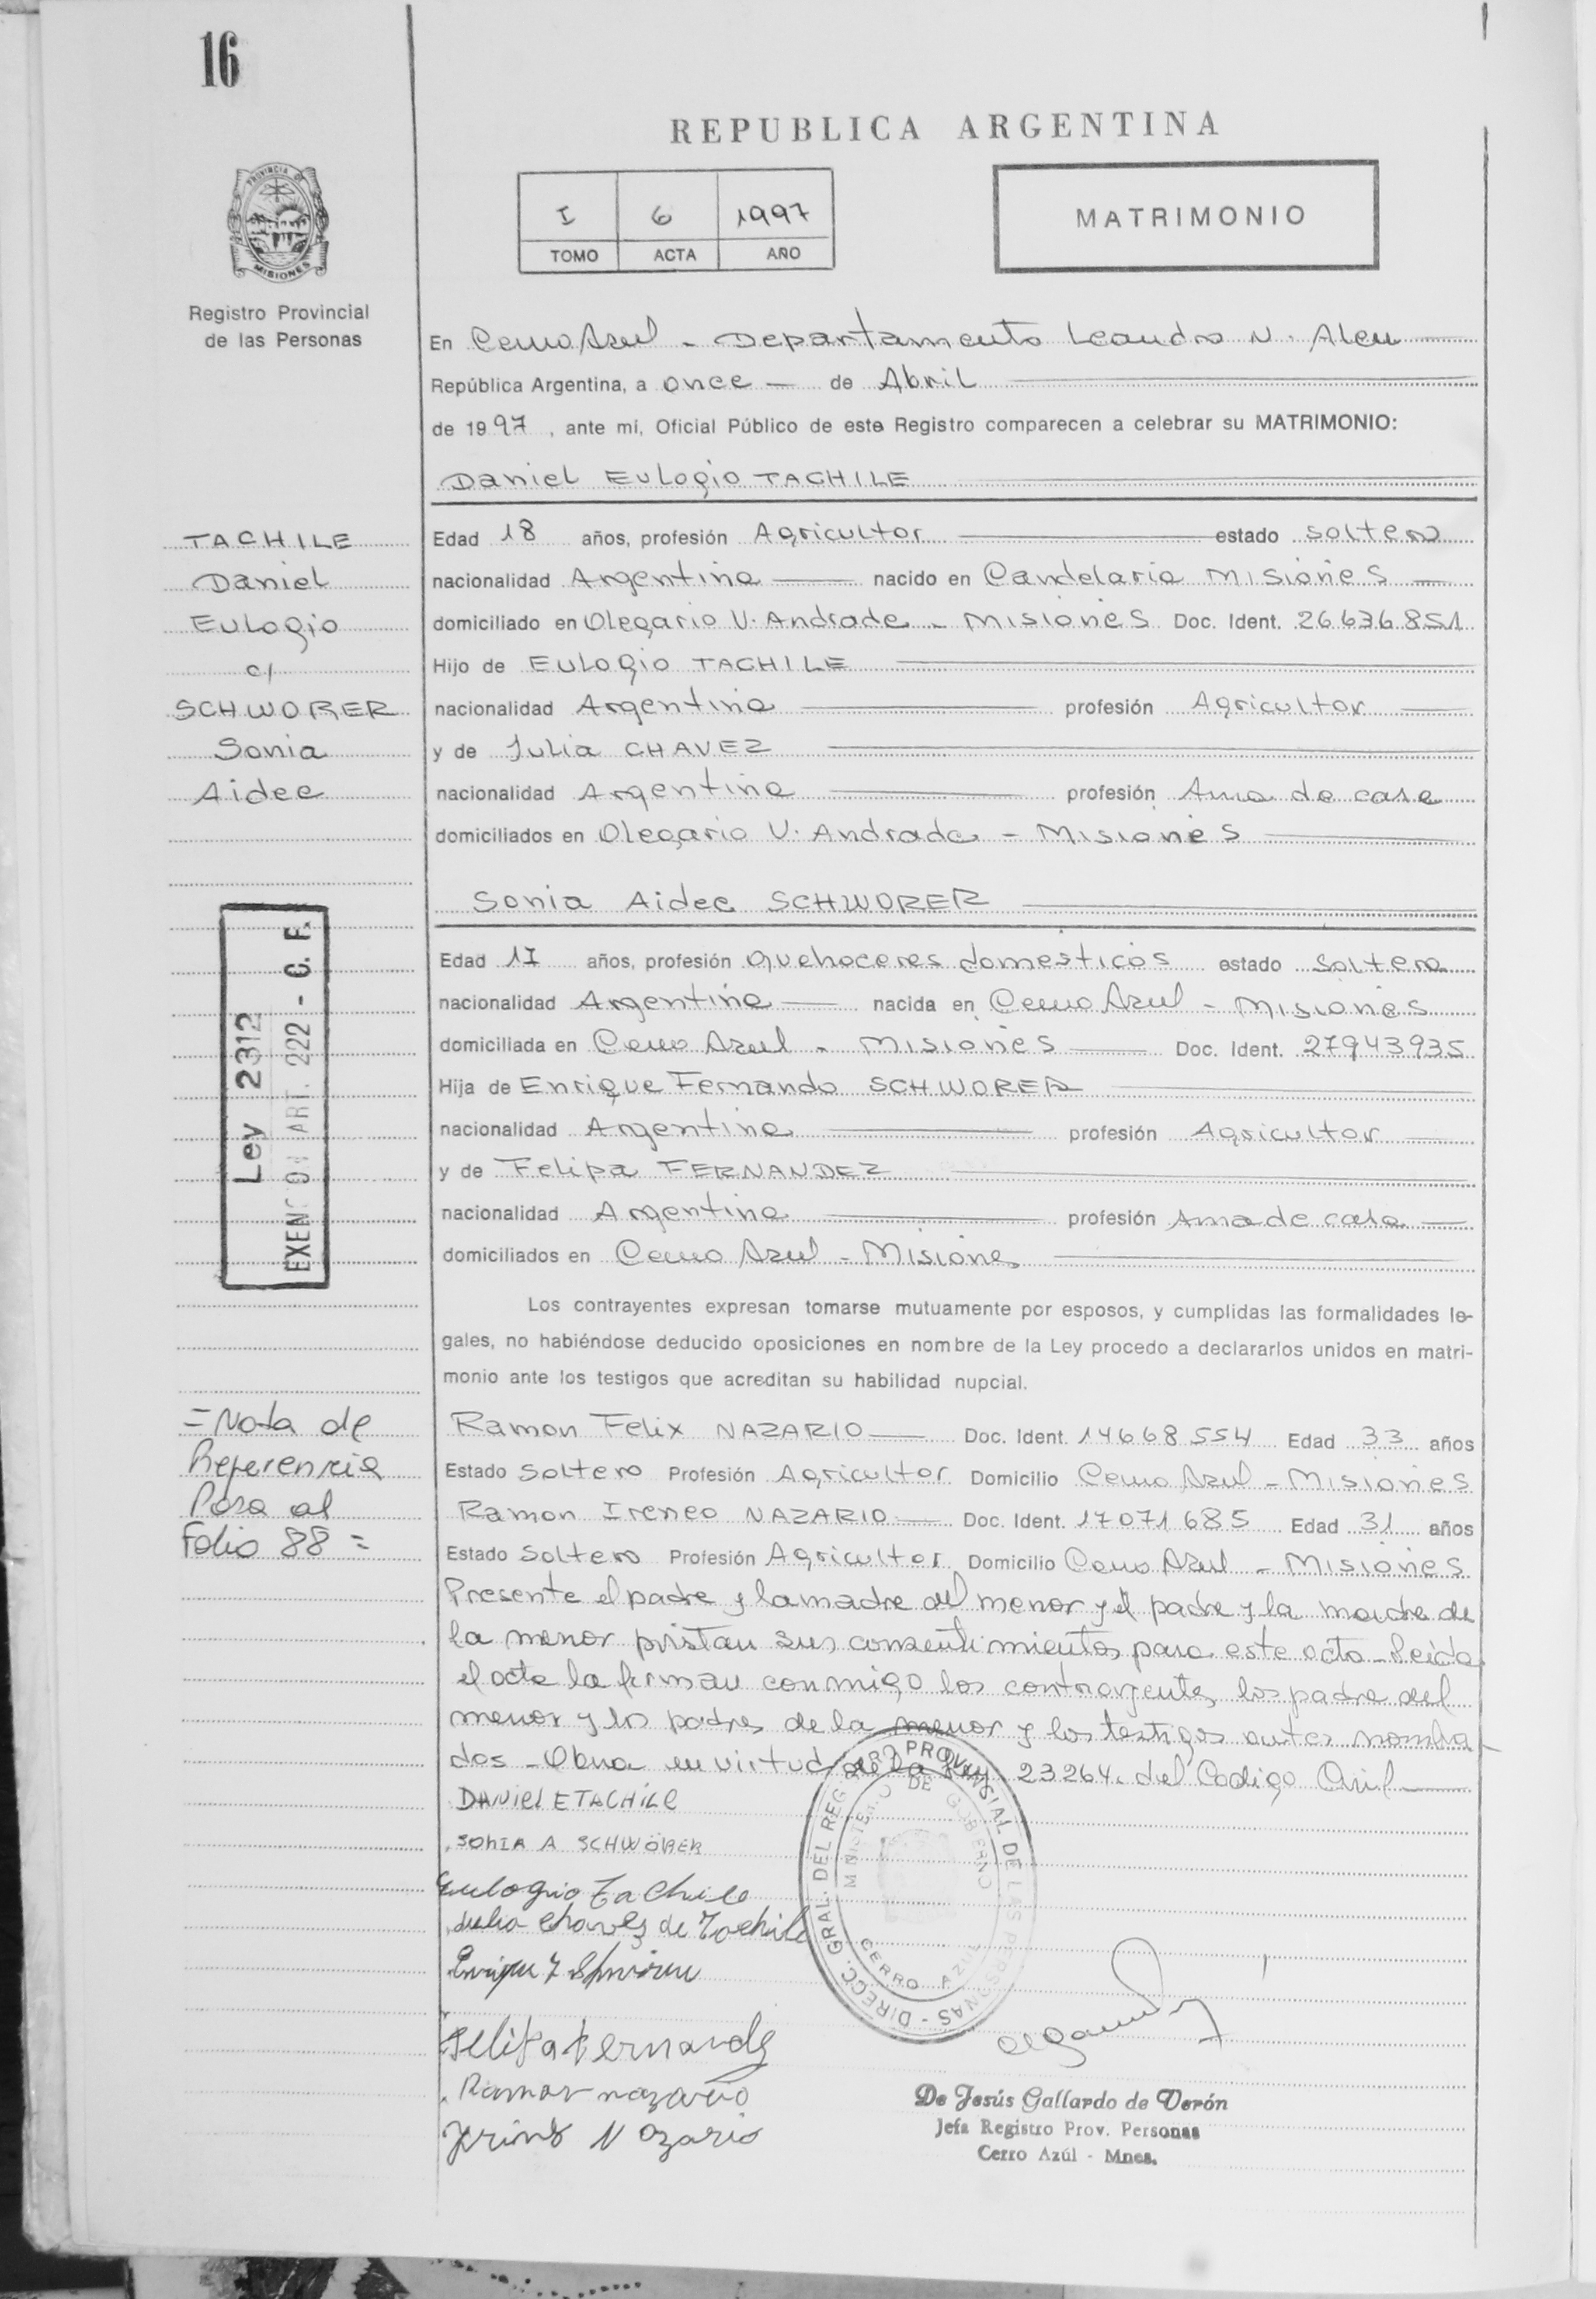 16
REPUBLICA ARGENTINA
I 6 1997
TOMO ACTA AÑO
MATRIMONIO
PROVINCIA DE MISIONES
Registro Provincial
de las Personas
En Cerro Azul - Departamento Leandro N. Alem
República Argentina, a once — de Abril
de 1997, ante mí, Oficial Público de este Registro comparecen a celebrar su MATRIMONIO:
Daniel Eulogio TACHILE
TACHILE
Daniel
Eulogio
c/
SCHWORER
Sonia
Aidee
Edad 18 años, profesión Agricultor estado soltero
nacionalidad Argentina nacido en Candelaria Misiones
domiciliado en Olegario V. Andrade - Misiones Doc. Ident. 26.636.851
Hijo de Eulogio TACHILE
nacionalidad Argentina profesión Agricultor
y de Julia CHAVEZ
nacionalidad Argentina profesión Ama de casa
domiciliados en Olegario V. Andrade - Misiones
Sonia Aidee SCHWORER
Edad años, profesión quehaceres domesticos estado soltera
nacionalidad Argentina nacida en Cerro Azul - Misiones
domiciliada en Cerro Azul - Misiones Doc. Ident. 27943935
Hija de Enrique Fernando SCHWORER
nacionalidad Argentina profesión Agricultor
y de Felipa FERNANDEZ
nacionalidad Argentina profesión Ama de casa
domiciliados en Cerro Azul - Misiones
Ley 2312
EXENC ON ART. 222 - C. F.
Los contrayentes expresan tomarse mutuamente por esposos, y cumplidas las formalidades le-
gales, no habiéndose deducido oposiciones en nombre de la Ley procedo a declararlos unidos en matri-
monio ante los testigos que acreditan su habilidad nupcial.
= Nota de
Referencia
Pasa al
Folio 88 =
Ramon Felix NAZARIO Doc. Ident. 14668554 Edad 33 años
Estado Soltero Profesión Agricultor Domicilio Cerro Azul - Misiones
Ramon Ireneo NAZARIO Doc. Ident. 17071685 Edad 31 años
Estado Soltero Profesión Agricultor Domicilio Cerro Azul - Misiones
Presente el padre y la madre del menor y el padre y la madre de
la menor pristan sus consentimientos para este acto - Leida
el acta la firman conmigo los contrayentes, los padre del
menor y los padres de la menor y los testigos antes nombra
dos - Obra en virtud de la Ley 23264. del Codigo Civil
DANiel E TACHiLE
SONIA A SCHWÖRER
Eulogio Tachile
Julia Chavez de Tachile
Felipa Fernandez
Ramon nazario
Nazario
DIRECC. GRAL. DEL REGISTRO PROVINSIAL DE LAS PERSONAS -
MINISTERIO DE GOBIERNO
CERRO AZUL
De Jesús Gallardo de Verón
Jefa Registro Prov. Personas
Cerro Azúl - Mnes.